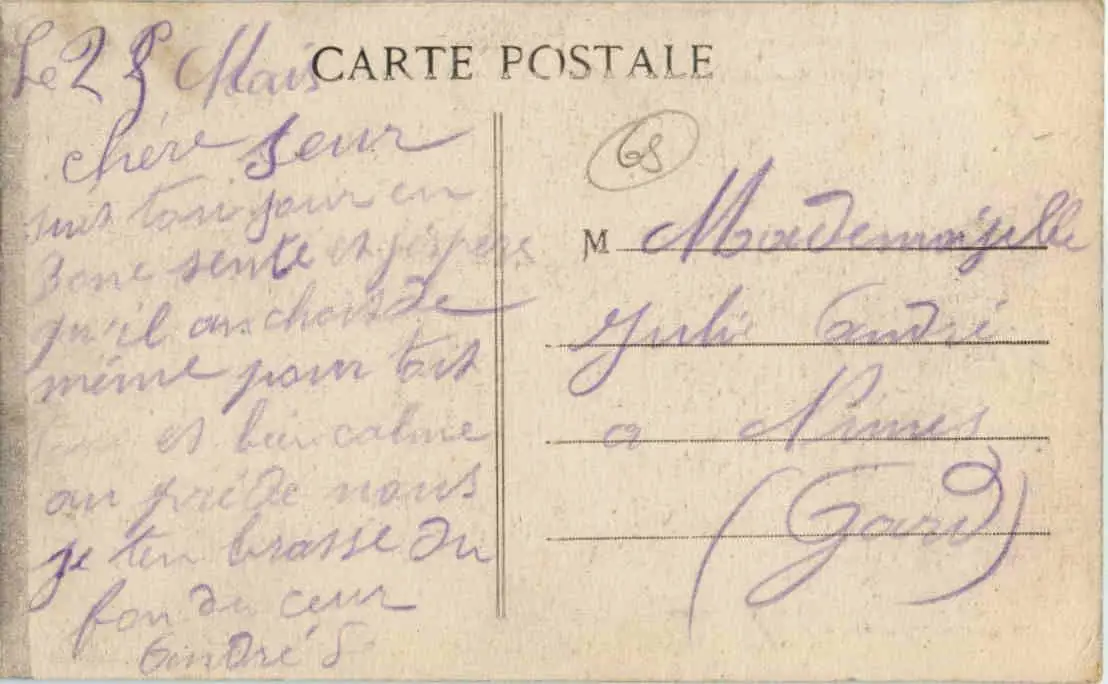 CARTE POSTALE
Le 25 Mais
chère seur
suis toujour en
Bone sente et j'espère
qu'il an choit de
même pour toit
et bien calme
au prède nous
je ten brasse du
fon du ceur
André S
68
M Mademoiselle
Julie André
a Nimes
(Gard)